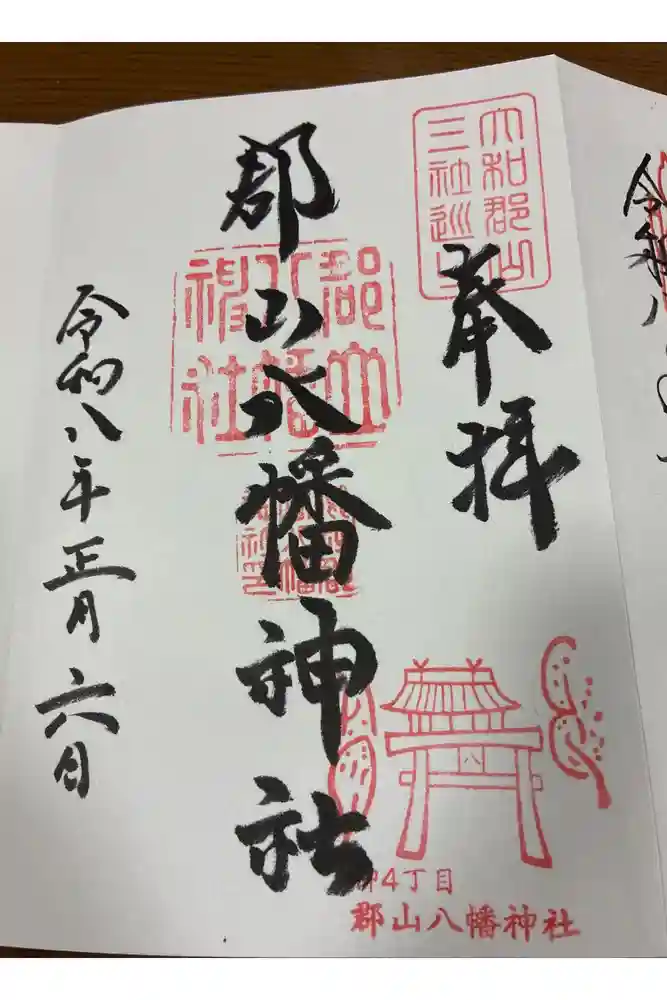 大和郡山
三社巡り
奉拝
郡山八幡神社
郡山
八幡
神社
令和八年正月六日
八
柳4丁目
郡山八幡神社
令和八